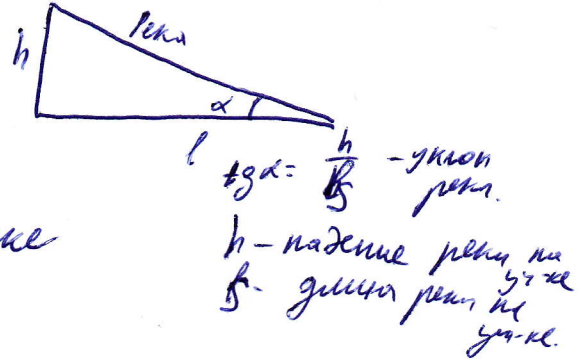 Река
h
α
l
tgα = h/S - уклон
реки.
ке
h - падение реки на
уч-ке
S - длина реки на
уч-ке.